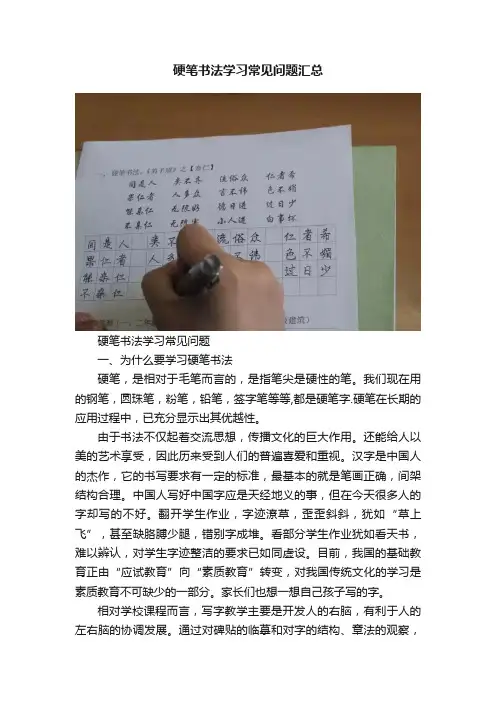 硬笔书法学习常见问题汇总
一、硬笔书法。《弟子规》之【亲仁】
同是人 类不齐 流俗众 仁者希
果仁者 人多畏 言不讳 色不媚
能亲仁 无限好 德日进 过日少
不亲仁 无限害 小人进 百事坏
同是人 类不 流俗众 仁者希
果仁者 人 不讳 色不媚
能亲仁 过日少
不亲仁
硬笔书法学习常见问题
一、为什么要学习硬笔书法
硬笔，是相对于毛笔而言的，是指笔尖是硬性的笔。我们现在用
的钢笔，圆珠笔，粉笔，铅笔，签字笔等等,都是硬笔字.硬笔在长期的
应用过程中，已充分显示出其优越性。
由于书法不仅起着交流思想，传播文化的巨大作用。还能给人以
美的艺术享受，因此历来受到人们的普遍喜爱和重视。汉字是中国人
的杰作，它的书写要求有一定的标准，最基本的就是笔画正确，间架
结构合理。中国人写好中国字应是天经地义的事，但在今天很多人的
字却写的不好。翻开学生作业，字迹潦草，歪歪斜斜，犹如“草上
飞”，甚至缺胳膊少腿，错别字成堆。看部分学生作业犹如看天书，
难以辨认，对学生字迹整洁的要求已如同虚设。目前，我国的基础教
育正由“应试教育”向“素质教育”转变，对我国传统文化的学习是
素质教育不可缺少的一部分。家长们也想一想自己孩子写的字。
相对学校课程而言，写字教学主要是开发人的右脑，有利于人的
左右脑的协调发展。通过对碑贴的临摹和对字的结构、章法的观察，